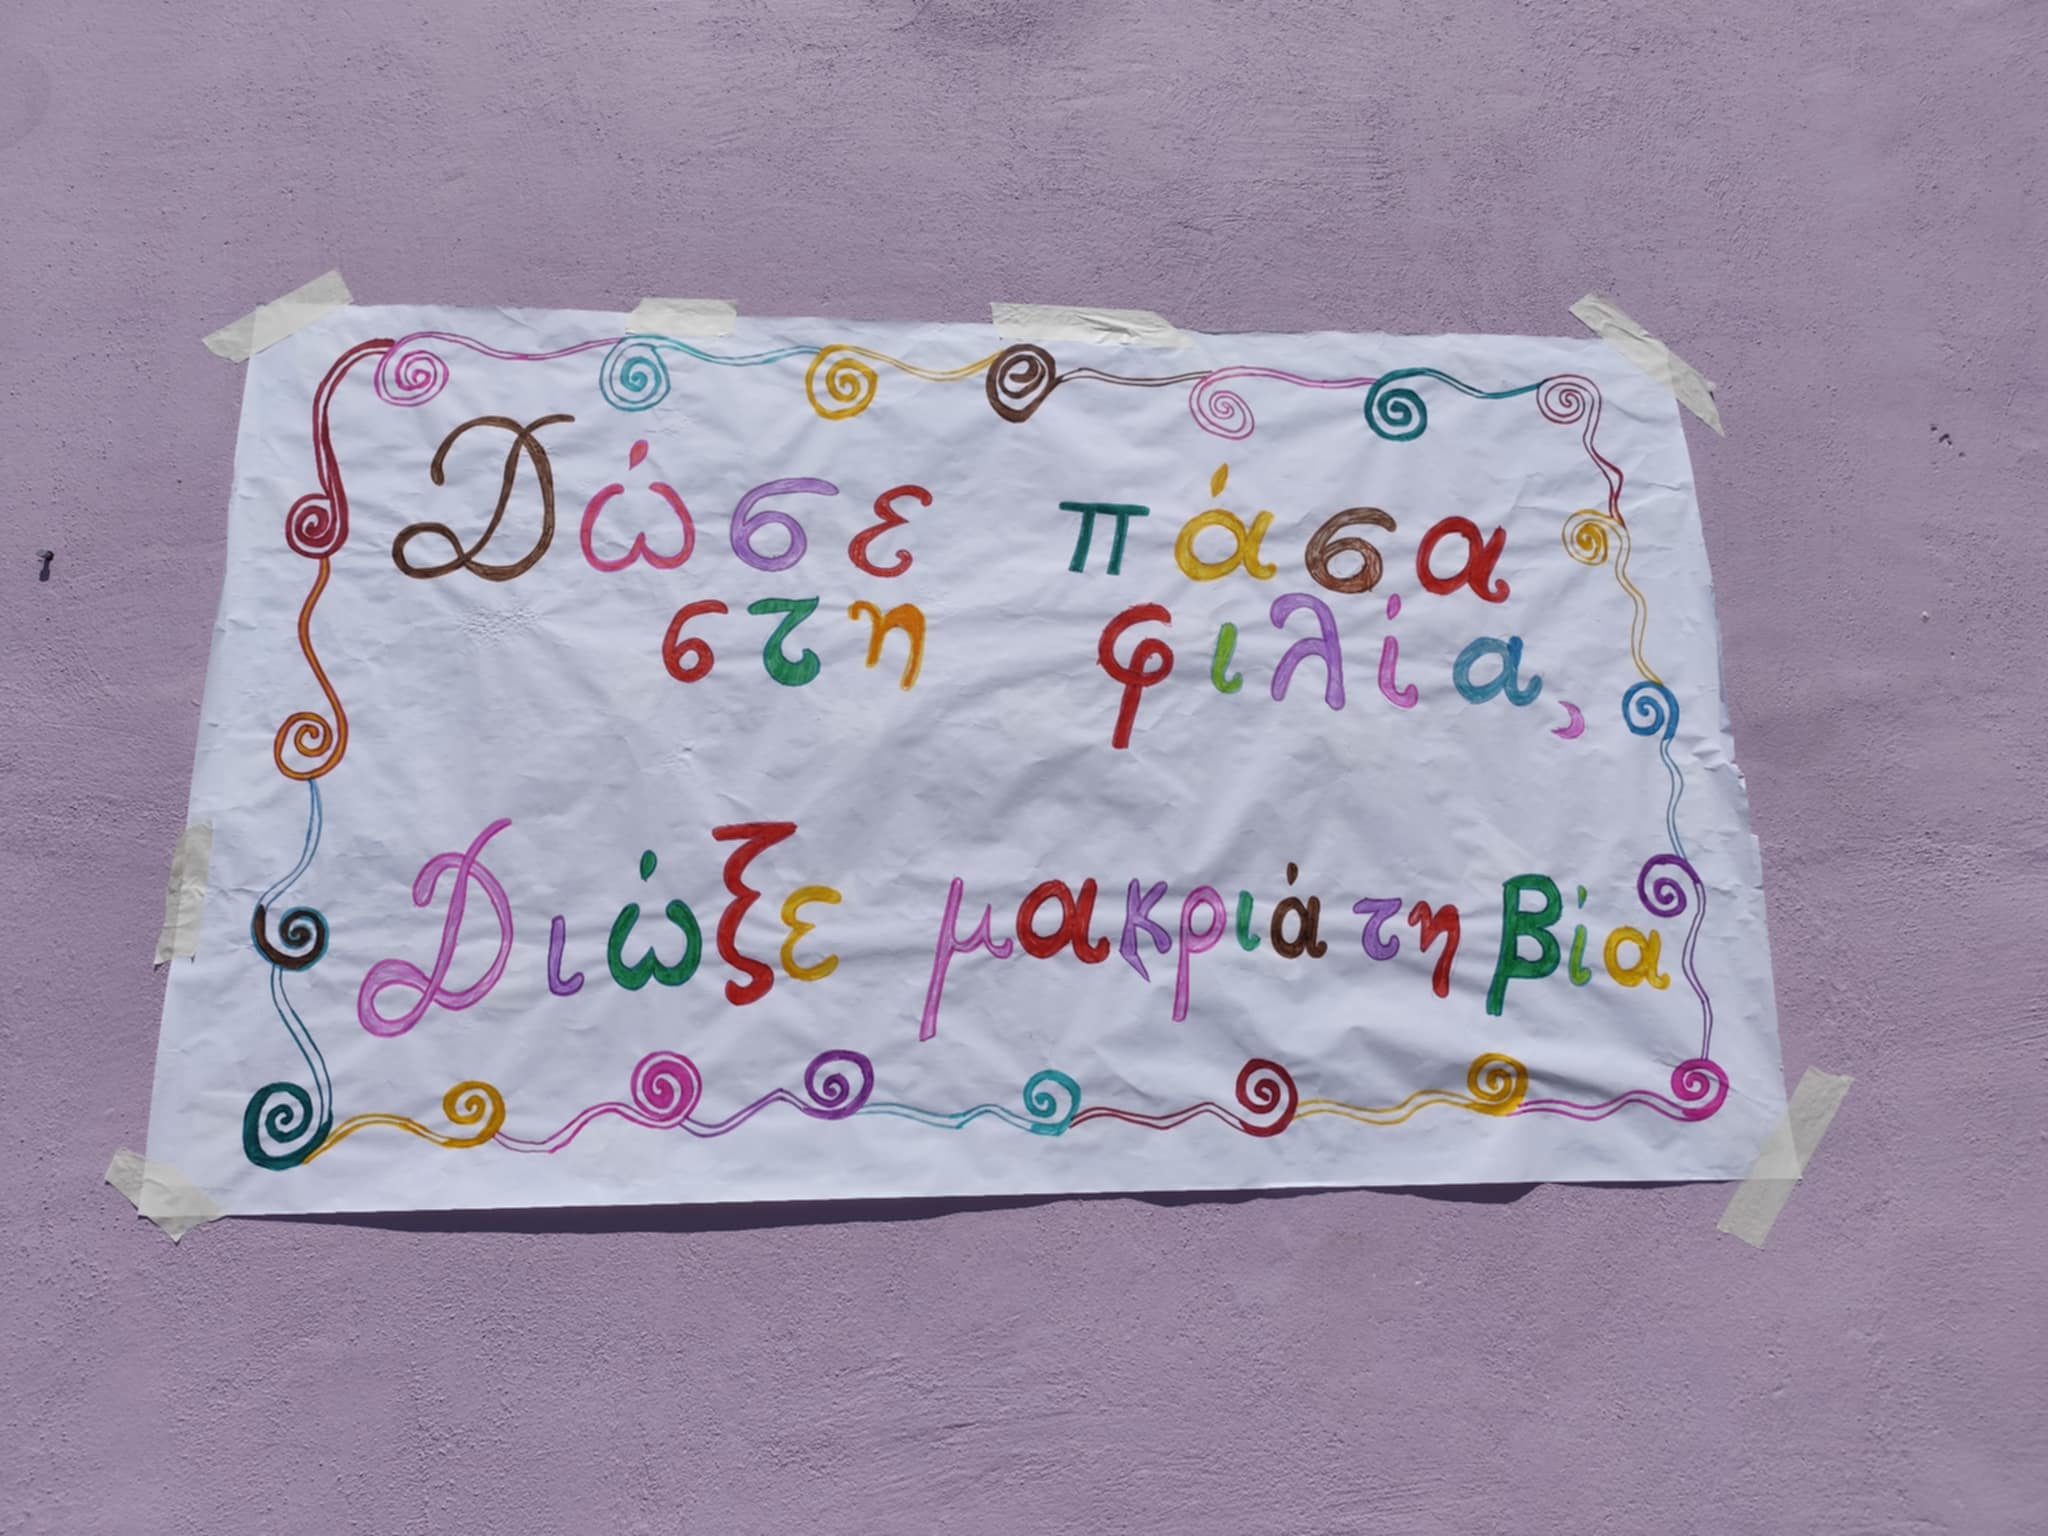 Δώσε πάσα
στη φιλία,
Διώξε μακριά τη βία